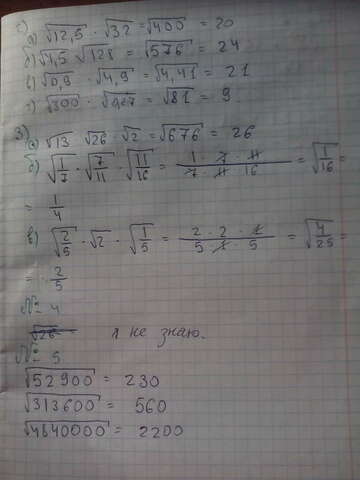 c)
а) √12,5 · √32 = √400 = 20
б) √4,5 √128 = √576 = 24
в) √0,9 · √4,9 = √4,41 = 21
г) √300 · √0,27 = √81 = 9.
3)
а) √13 √26 · √2 = √676 = 26
б) √1/7 · √7/11 · √11/16 = 1 · 7 · 11 / 7 · 11 · 16 = √1/16 =
= 1/4
в) √2/5 · √2 · √1/5 = 2 · 2 · 1 / 5 · 1 · 5 = √4/25 =
= 2/5
№ 4
√26 я не знаю.
№ 5
√52900 = 230
√313600 = 560
√4840000 = 2200